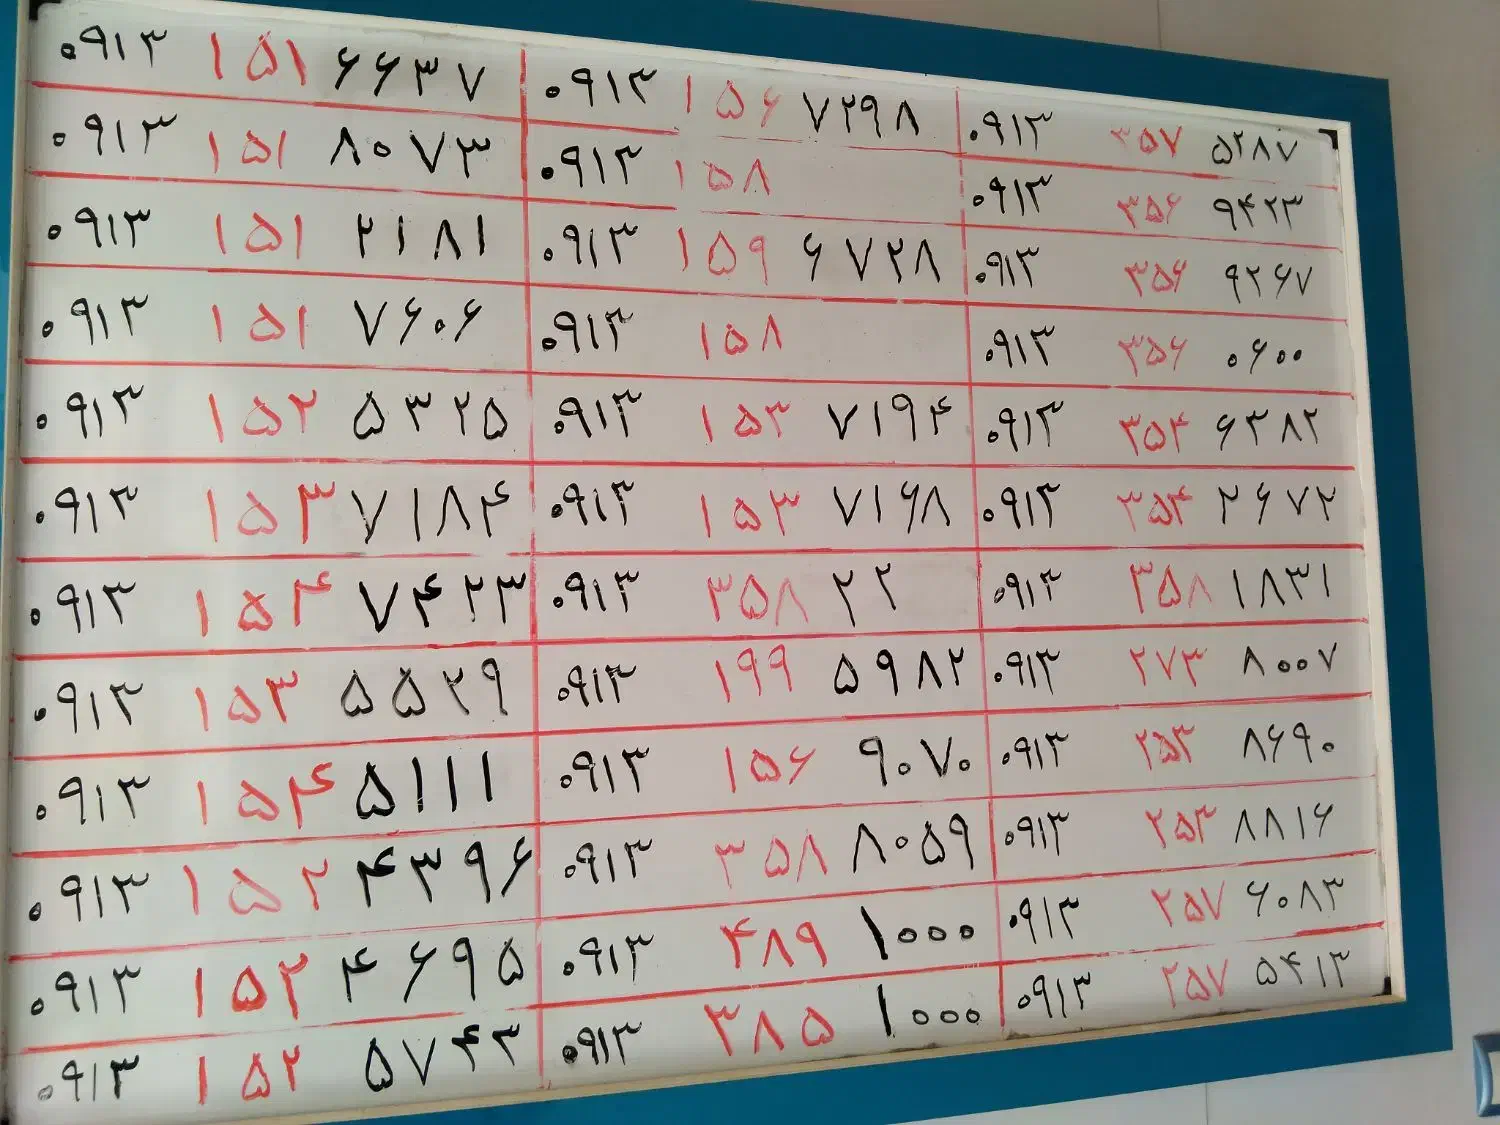 ۰۹۱۳ ۱۵۱ ۶۶۳۷
۰۹۱۳ ۱۵۱ ۸۰۷۳
۰۹۱۳ ۱۵۱ ۲۱۸۱
۰۹۱۳ ۱۵۱ ۷۶۰۶
۰۹۱۳ ۱۵۲ ۵۳۲۵
۰۹۱۳ ۱۵۳ ۷۱۸۴
۰۹۱۳ ۱۵۴ ۷۴۲۳
۰۹۱۳ ۱۵۳ ۵۵۲۹
۰۹۱۳ ۱۵۴ ۵۱۱۱
۰۹۱۳ ۱۵۲ ۴۳۹۶
۰۹۱۳ ۱۵۲ ۴۶۹۵
۰۹۱۳ ۱۵۲ ۵۷۴۳
۰۹۱۳ ۱۵۶ ۷۲۹۸
۰۹۱۳ ۱۵۸
۰۹۱۳ ۱۵۹ ۶۷۲۸
۰۹۱۳ ۱۵۸
۰۹۱۳ ۱۵۳ ۷۱۹۴
۰۹۱۳ ۱۵۳ ۷۱۶۸
۰۹۱۳ ۳۵۸ ۲۲
۰۹۱۳ ۱۹۹ ۵۹۸۲
۰۹۱۳ ۱۵۶ ۹۰۷۰
۰۹۱۳ ۳۵۸ ۸۰۵۹
۰۹۱۳ ۴۸۹ ۱۰۰۰
۰۹۱۳ ۳۸۵ ۱۰۰۰
۰۹۱۳ ۳۵۷ ۵۲۸۷
۰۹۱۳ ۳۵۶ ۹۴۲۳
۰۹۱۳ ۳۵۶ ۹۲۶۷
۰۹۱۳ ۳۵۶ ۰۶۰۰
۰۹۱۳ ۳۵۴ ۶۳۸۲
۰۹۱۳ ۳۵۴ ۲۶۷۲
۰۹۱۳ ۳۵۸ ۱۸۳۱
۰۹۱۳ ۲۷۳ ۸۰۰۷
۰۹۱۳ ۲۵۳ ۸۶۹۰
۰۹۱۳ ۲۵۳ ۸۸۱۶
۰۹۱۳ ۲۵۷ ۶۰۸۳
۰۹۱۳ ۲۵۷ ۵۴۱۳